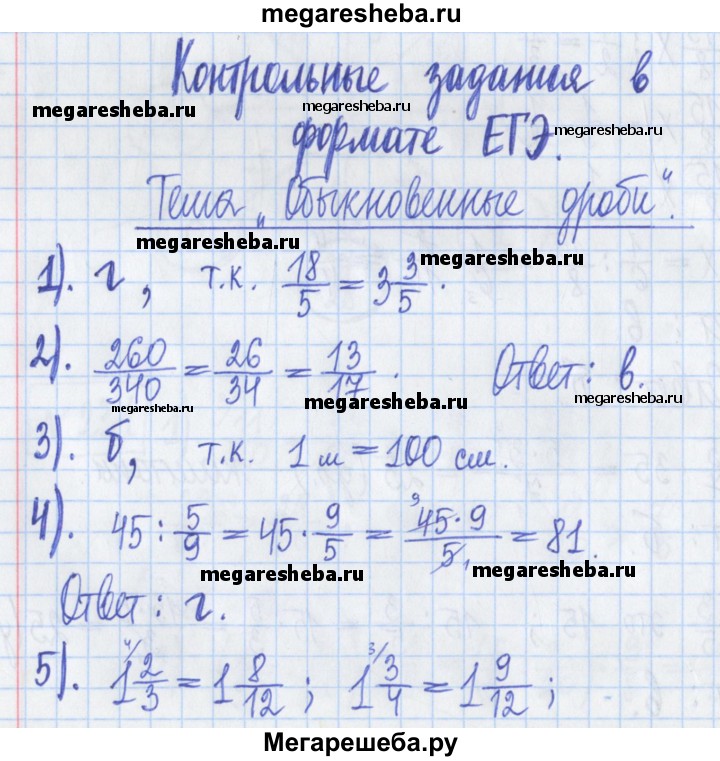 megaresheba.ru
Контрольные задания в
megaresheba.ru megaresheba.ru
формате ЕГЭ. megaresheba.ru
Тема „Обыкновенные дроби“.
megaresheba.ru megaresheba.ru
1). г, т.к. 18/5 = 3 3/5.
2). 260/340 = 26/34 = 13/17. Ответ: в.
megaresheba.ru megaresheba.ru megaresheba.ru
3). б, т.к. 1 м = 100 см.
4). 45 : 5/9 = 45 · 9/5 = 9 45·9/5 1 = 81.
megaresheba.ru megaresheba.ru
Ответ: г.
5). 4/ 1 2/3 = 1 8/12 ; 3/ 1 3/4 = 1 9/12 ;
Мегарешеба.ру